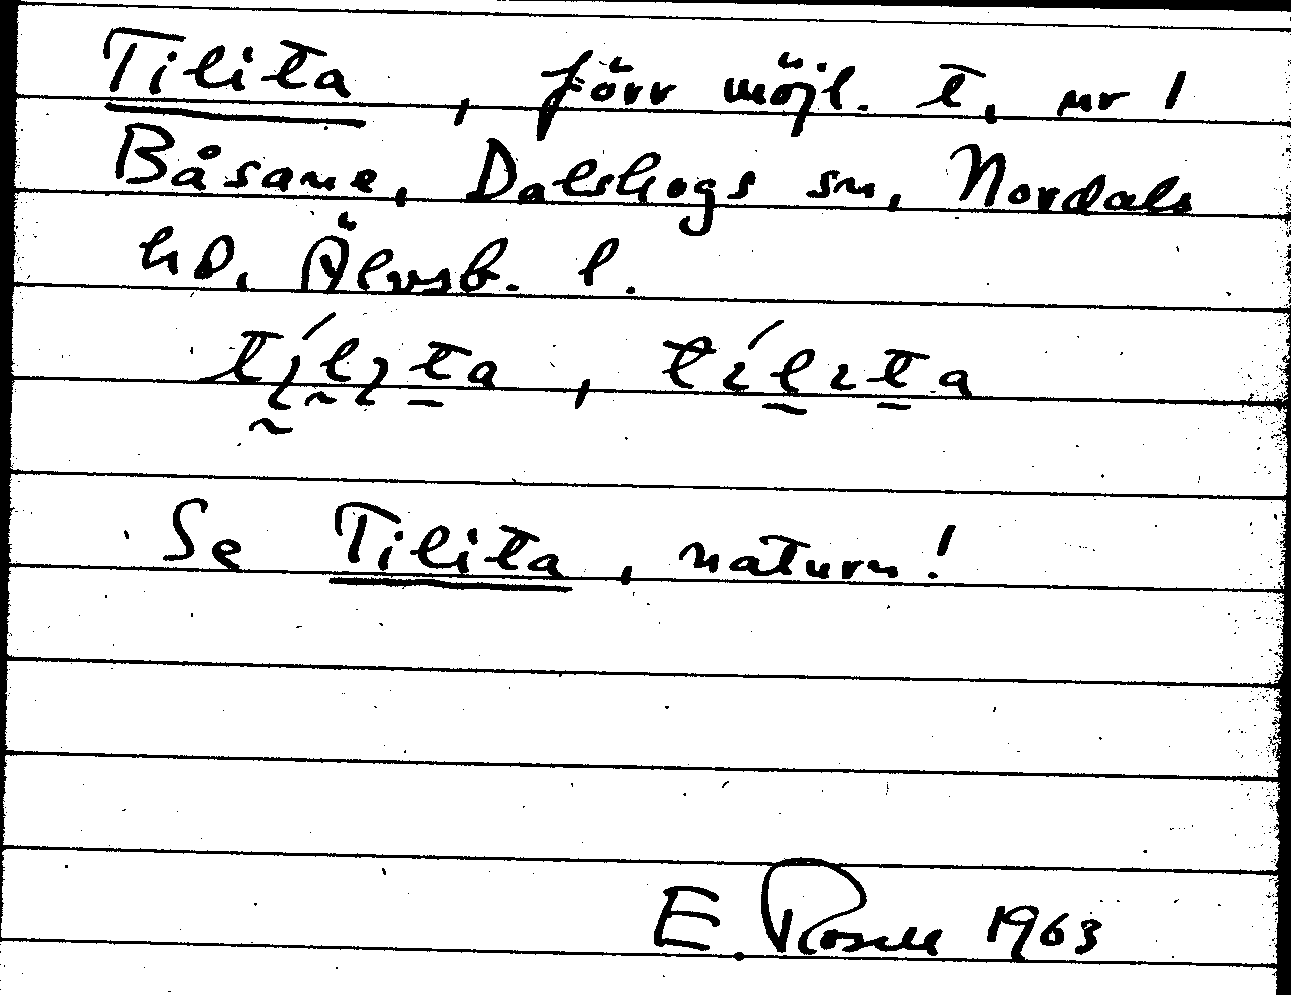 Tilita, förr möjl. t, nr 1
Båsane, Dalskogs sn, Nordals
hd, Älvsb. l.
Se Tilita, naturn!
E. Rosell 1963